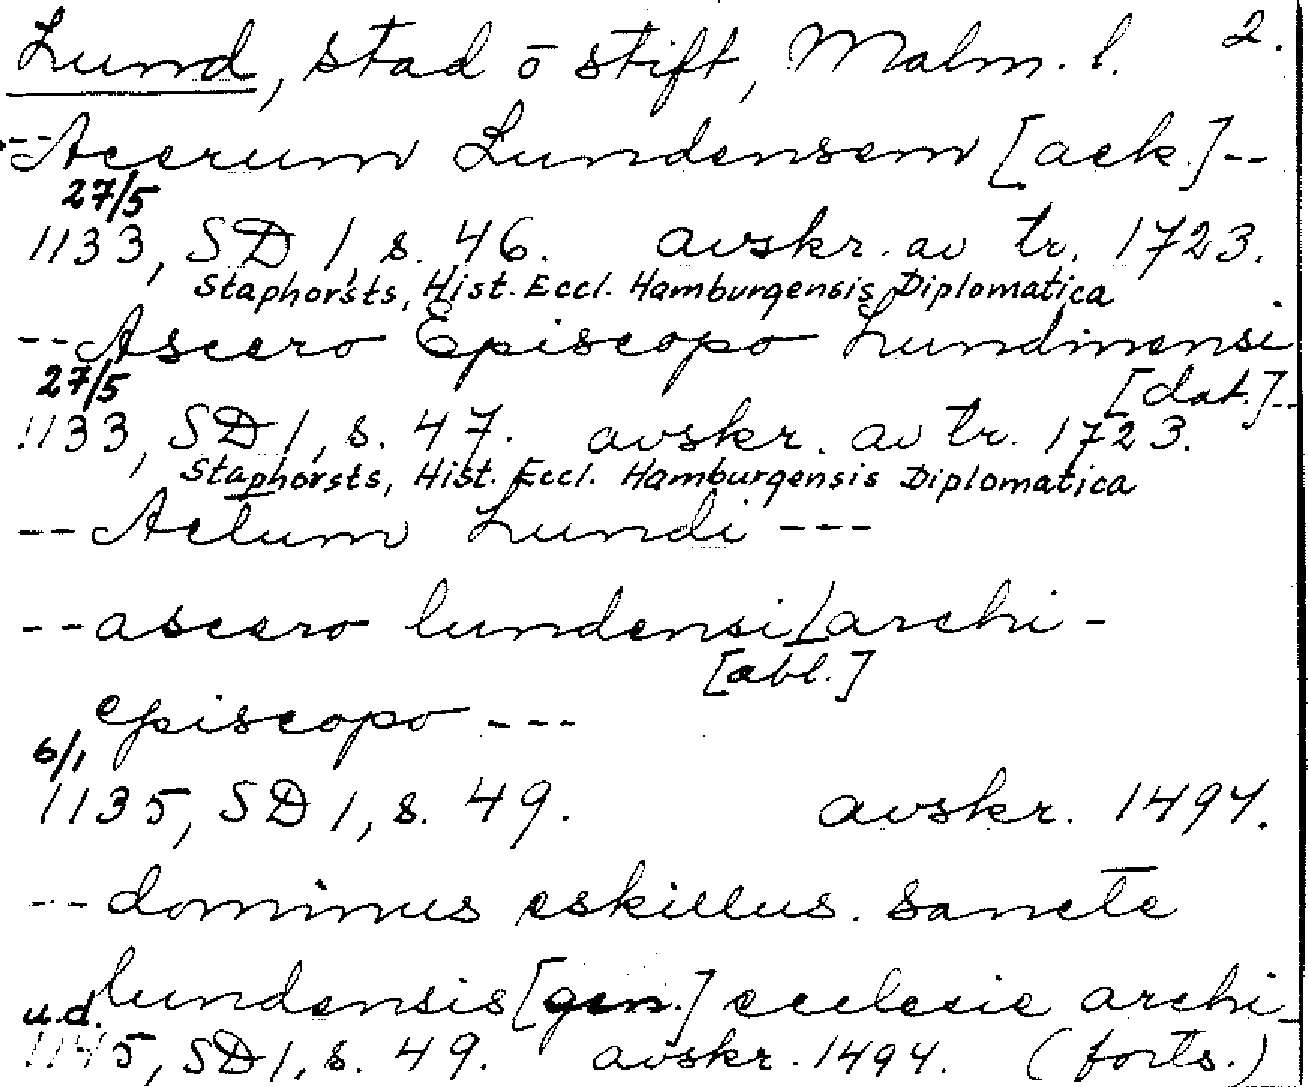 Lund, stad o stift, Malm. l. 2.
--Acerum Lundensem [ack.]--
27/5
1133, SD 1, s. 46. avskr. av tr. 1723.
Staphorsts, Hist. Eccl. Hamburgensis Diplomatica
--Ascero Episcopo Lundinensi
[dat.]--
27/5
1133, SD 1, s. 47. avskr. av tr. 1723.
Staphorsts, Hist. Eccl. Hamburgensis Diplomatica
--Actum Lundi---
--ascero lundensi archi-
[abl.]
episcopo---
6/1
1135, SD 1, s. 49. avskr. 1494.
--dominus eskillus. sancte
lundensis [gen.] ecclecie archi-
u.d.
1145, SD 1, s. 49. avskr. 1494. (forts.)